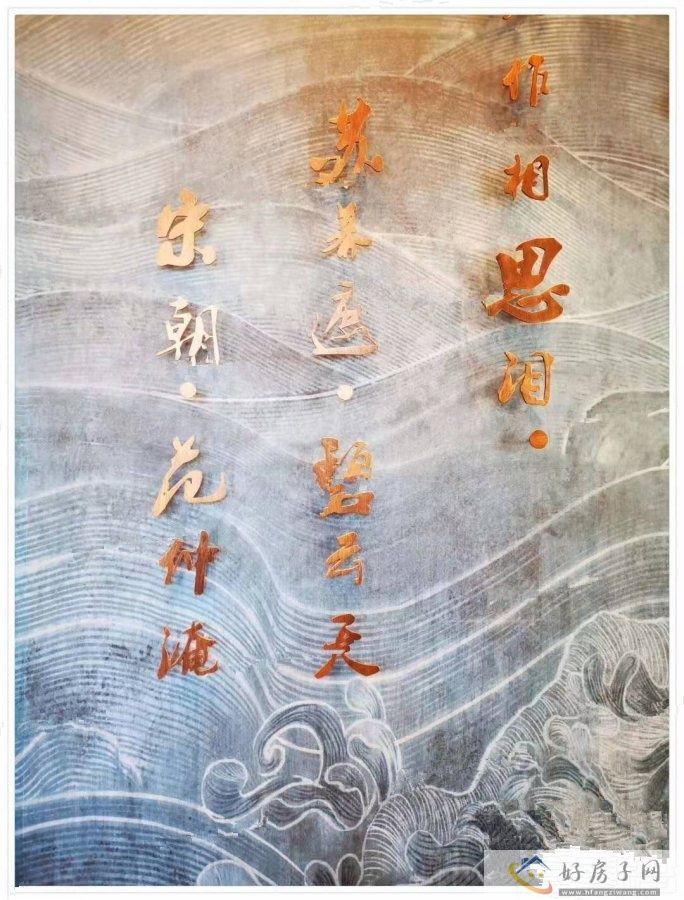 作相思泪·
苏幕遮·碧云天
宋朝·范仲淹
好房子网
www.hfangziwang.com